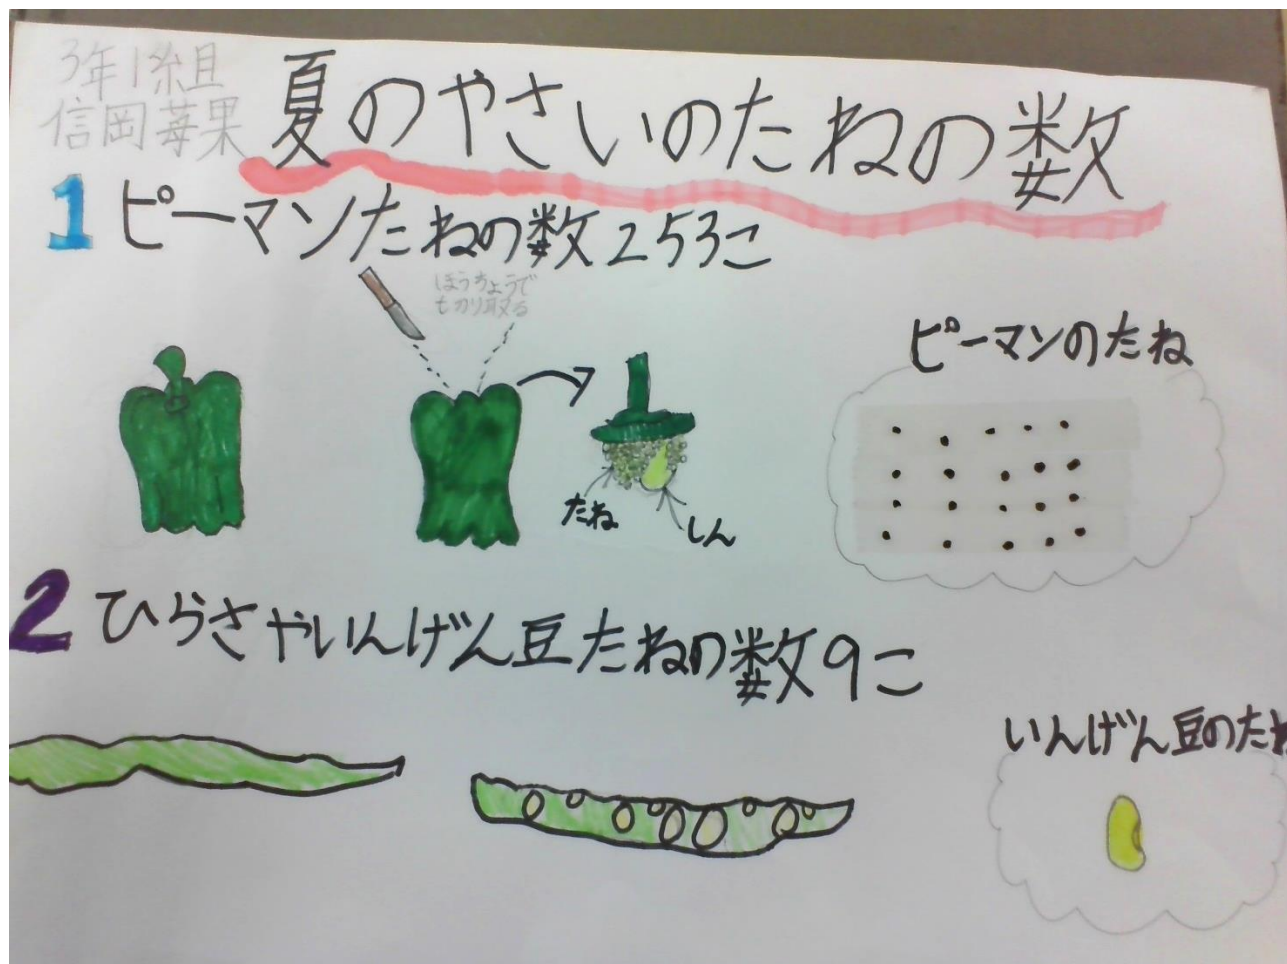 3年1組
信岡苺果
夏のやさいのたねの数
1 ピーマンたねの数253こ
ほうちょうで
切り取る
たね
しん
ピーマンのたね
2 ひらさやいんげん豆たねの数9こ
いんげん豆のたね